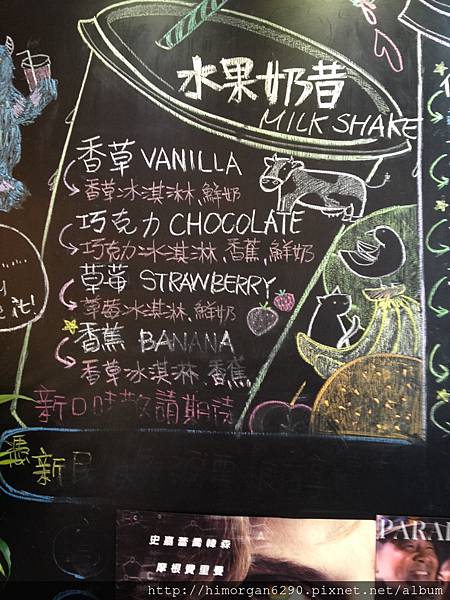 水果奶昔
MILK SHAKE
香草 VANILLA
香草冰淇淋、鮮奶
巧克力 CHOCOLATE
巧克力冰淇淋、香蕉、鮮奶
草莓 STRAWBERRY
草莓冰淇淋、鮮奶
香蕉 BANANA
香草冰淇淋、香蕉
新口味敬請期待
新
史嘉蕾喬韓森
摩根費里曼
PARA
http://himorgan6290.pixnet.net/album